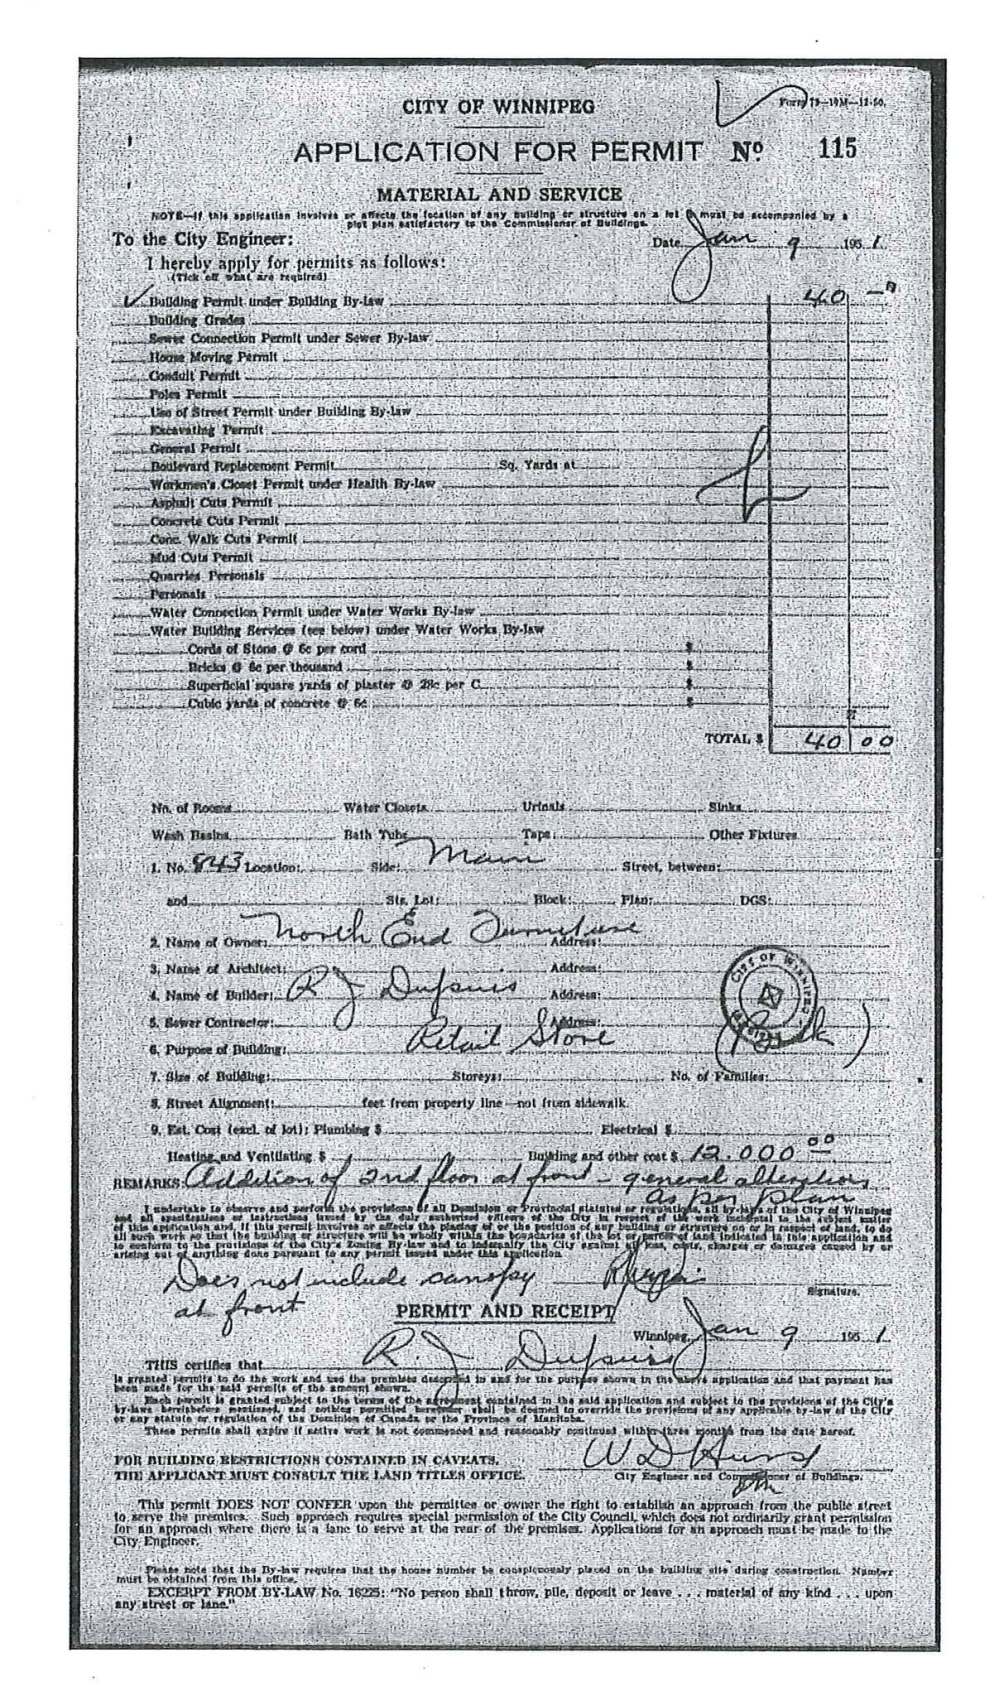 Form 79—10M—12-50.
CITY OF WINNIPEG
APPLICATION FOR PERMIT Nº 115
MATERIAL AND SERVICE
NOTE—If this application involves or affects the location of any building or structure on a lot it must be accompanied by a
plot plan satisfactory to the Commissioner of Buildings.
To the City Engineer: Date Jan 9 1951
I hereby apply for permits as follows:
(Tick off what are required)
✓ Building Permit under Building By-law 40 —
Building Grades
Sewer Connection Permit under Sewer By-law
House Moving Permit
Conduit Permit
Poles Permit
Use of Street Permit under Building By-law
Excavating Permit
General Permit
Boulevard Replacement Permit Sq. Yards at
Workmen's Closet Permit under Health By-law
Asphalt Cuts Permit
Concrete Cuts Permit
Conc. Walk Cuts Permit
Mud Cuts Permit
Quarries Personals
Personals
Water Connection Permit under Water Works By-law
Water Building Services (see below) under Water Works By-law
Cords of Stone @ 6c per cord $
Bricks @ 6c per thousand
Superficial square yards of plaster @ 28c per C. $
Cubic yards of concrete @ 6c $
TOTAL $ 40 00
No. of Rooms Water Closets Urinals Sinks
Wash Basins Bath Tubs Taps Other Fixtures
1. No. 843 Location: Side: Main Street, between:
and Str. Lot: Block: Plan: DGS:
2. Name of Owner: North End Furniture Address:
3. Name of Architect: Address:
4. Name of Builder: R J Dupuis Address:
5. Sewer Contractor: Address:
6. Purpose of Building: Retail Store
CITY OF WINNIPEG
7. Size of Building: Storeys: No. of Families:
8. Street Alignment: feet from property line—not from sidewalk.
9. Est. Cost (excl. of lot): Plumbing $ Electrical $
Heating and Ventilating $ Building and other cost $ 12.000 00
REMARKS: Addition of 2nd floor at front – general alterations
as per plan
I undertake to observe and perform the provisions of all Dominion or Provincial statutes or regulations, all by-laws of the City of Winnipeg
and all specifications or instructions issued by the duly authorized officers of the City in respect of the work incidental to the subject matter
of this application and, if this permit involves or affects the placing of or the position of any building or structure on or in respect of land, to do
all such work so that the building or structure will be wholly within the boundaries of the lot or parcel of land indicated in this application and
to conform to the provisions of the City's Zoning By-law and to indemnify the City against all loss, costs, charges or damages caused by or
arising out of anything done pursuant to any permit issued under this application.
Does not include canopy
Signature.
at front
PERMIT AND RECEIPT
Winnipeg, Jan 9 1951
THIS certifies that R. J. Dupuis
is granted permits to do the work and use the premises described in and for the purpose shown in the above application and that payment has
been made for the said permits of the amount shown.
Each permit is granted subject to the terms of the agreement contained in the said application and subject to the provisions of the City's
by-laws hereinbefore mentioned, and nothing permitted hereunder shall be deemed to override the provisions of any applicable by-law of the City
or any statute or regulation of the Dominion of Canada or the Province of Manitoba.
These permits shall expire if active work is not commenced and reasonably continued within three months from the date hereof.
FOR BUILDING RESTRICTIONS CONTAINED IN CAVEATS, W D Hurst
THE APPLICANT MUST CONSULT THE LAND TITLES OFFICE. City Engineer and Commissioner of Buildings.
This permit DOES NOT CONFER upon the permittee or owner the right to establish an approach from the public street
to serve the premises. Such approach requires special permission of the City Council, which does not ordinarily grant permission
for an approach where there is a lane to serve at the rear of the premises. Applications for an approach must be made to the
City Engineer.
Please note that the By-law requires that the house number be conspicuously placed on the building site during construction. Number
must be obtained from this office.
EXCERPT FROM BY-LAW No. 16225: "No person shall throw, pile, deposit or leave . . . material of any kind . . . upon
any street or lane."